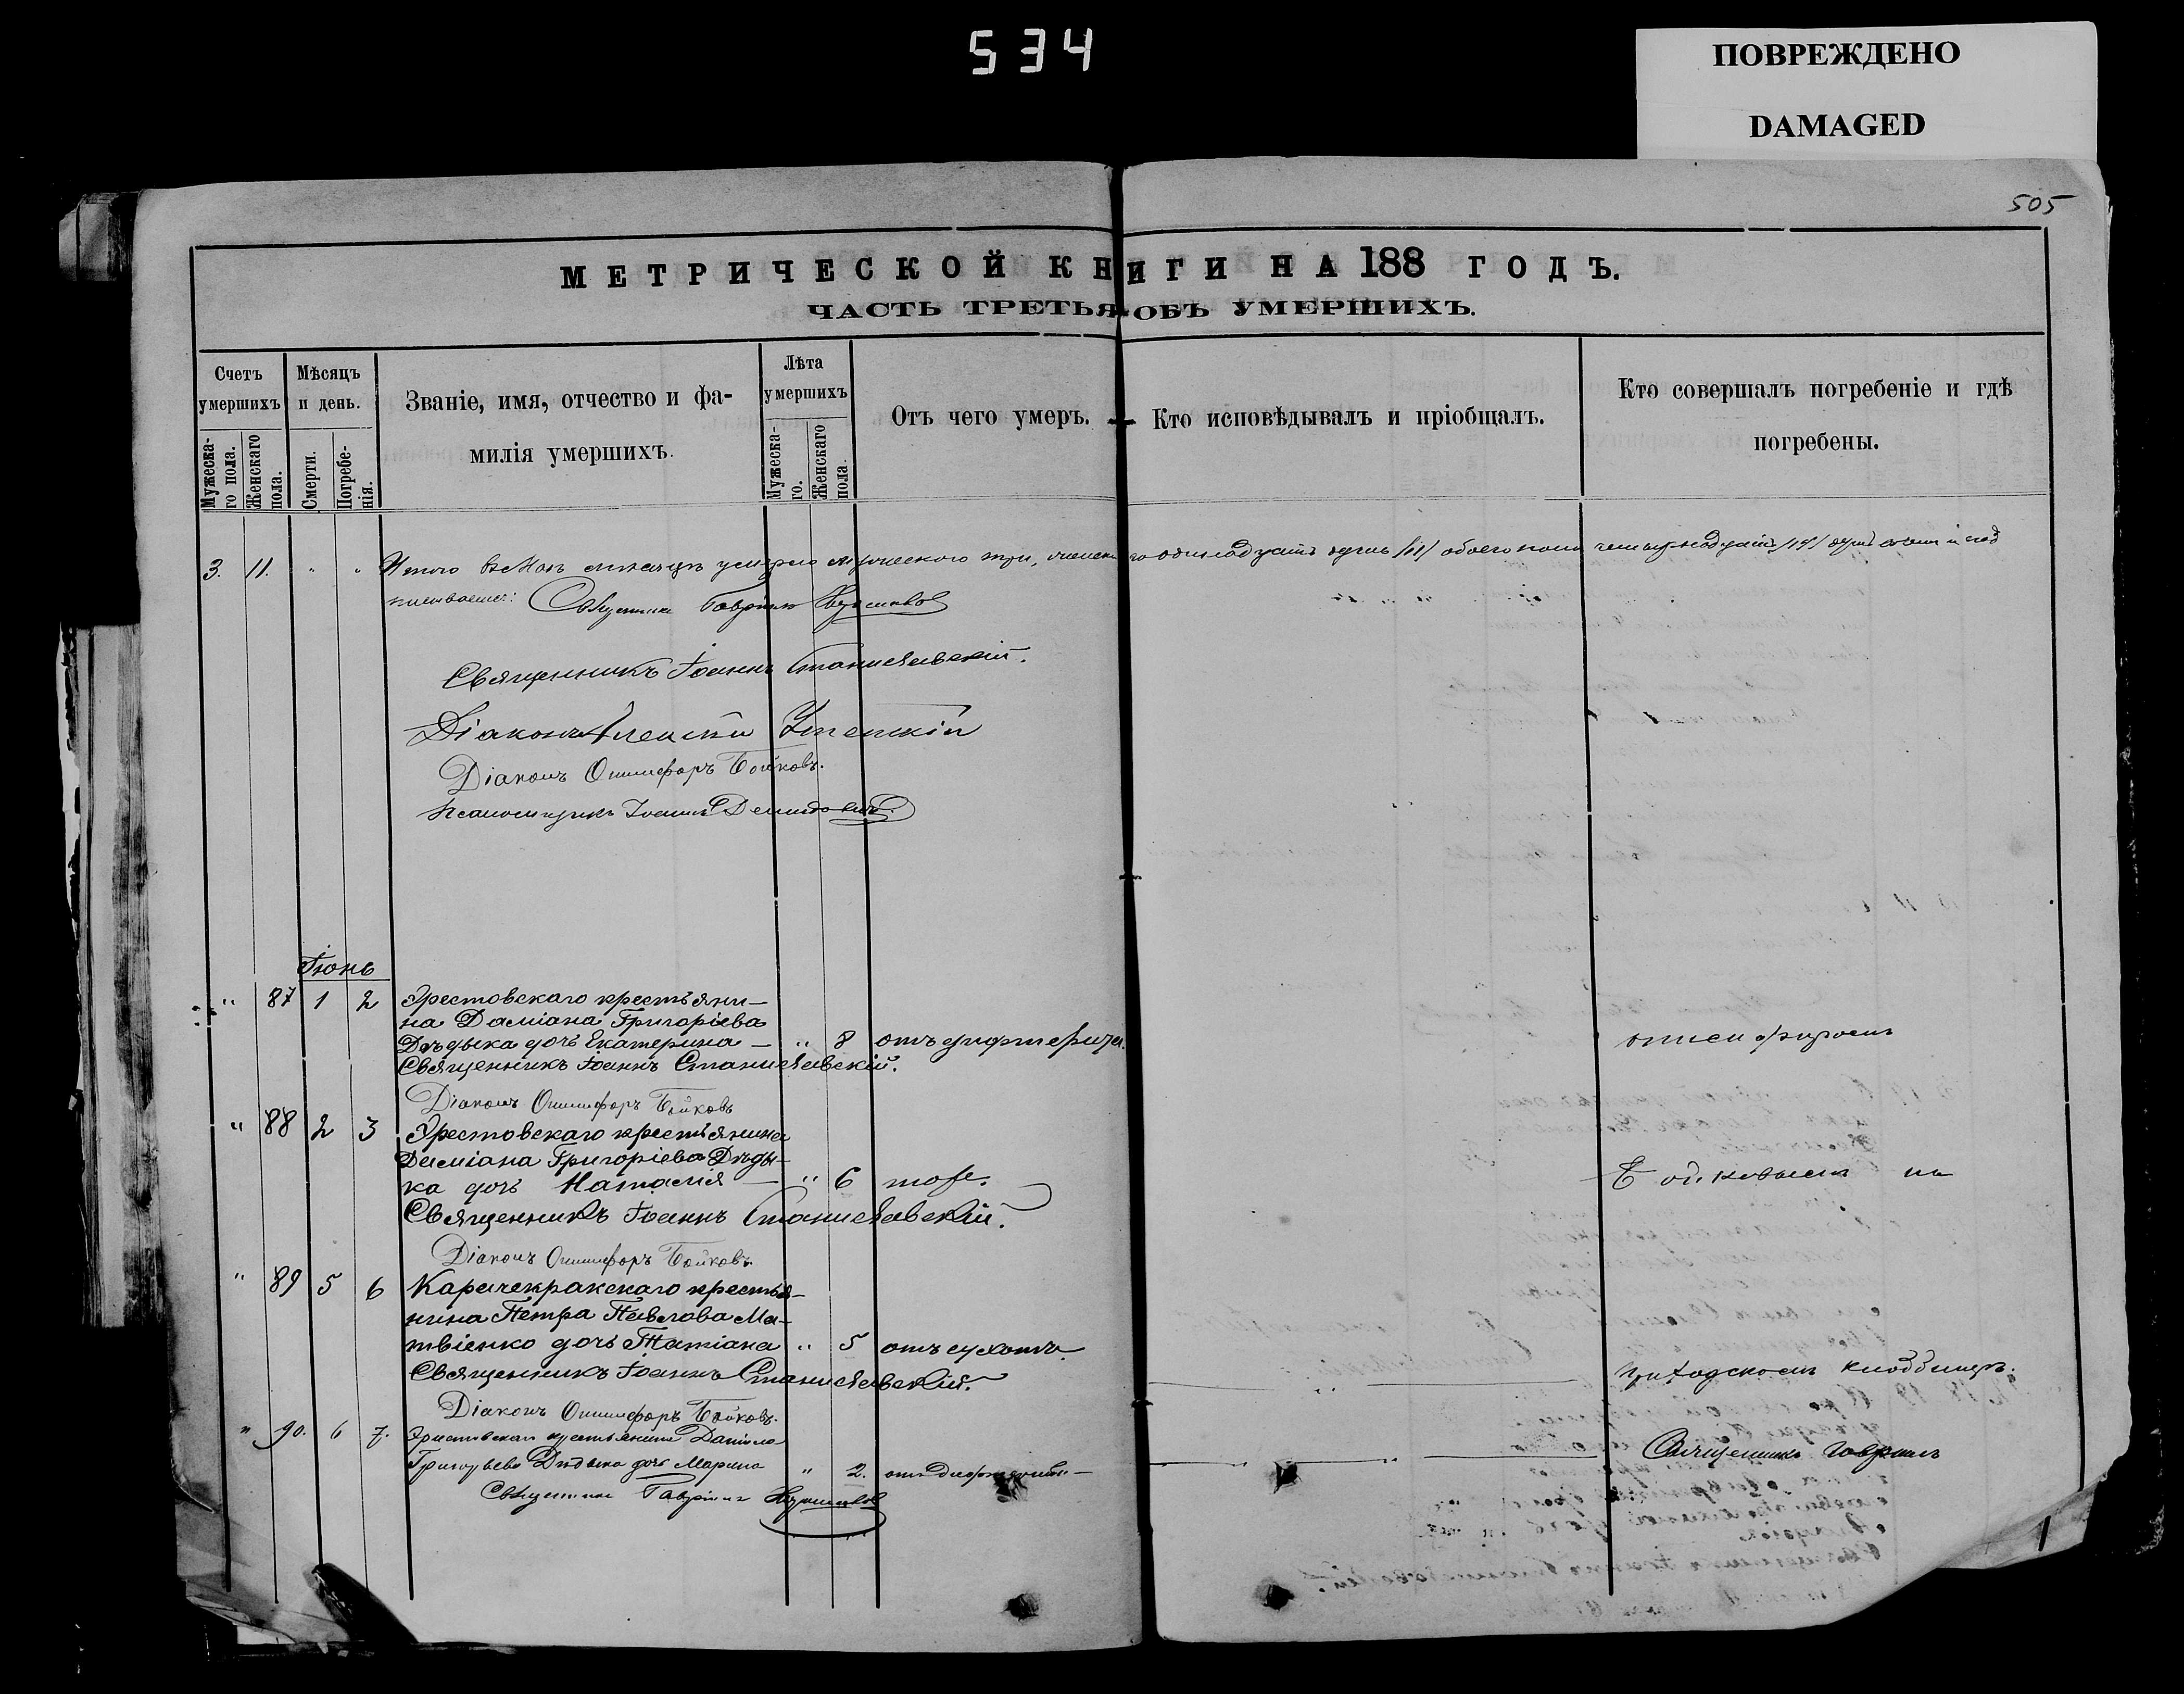 534
ПОВРЕЖДЕНО
DAMAGED
505
МЕТРИЧЕСКОЙ КНИГИ НА 188 ГОДЪ.
ЧАСТЬ ТРЕТЬЯ ОБЪ УМЕРШИХЪ.
Счетъ умершихъ
Мужескаго пола.
Женскаго пола.
Мѣсяцъ и день.
Смерти.
Погребенія.
Званіе, имя, отчество и фамилія умершихъ.
Лѣта умершихъ
Мужескаго.
Женскаго пола.
Отъ чего умеръ.
Кто исповѣдывалъ и пріобщалъ.
Кто совершалъ погребеніе и гдѣ погребены.
3. 11. " " Итого въ Маѣ мѣсяцѣ умерло мужескаго три, женскаго одинадцать душъ /11/ обоего пола четырнадцать /14/ душъ
Священникъ Гавріилъ
Священникъ Іоаннъ Станиславскій.
Діаконъ Алексѣй
Діаконъ Онисифоръ Бойковъ.
Псаломщикъ Іоаннъ Демидовичъ
Іюнь
" 87 1 2 Эрестовскаго крестьяни-
на Даміана Григоріева
Дѣдыка дочь Екатерина — " 8 отъ дифтерита.
Священникъ Іоаннъ Станиславскій.
Діаконъ Онисифоръ Бойковъ
" 88 2 3 Эрестовскаго крестьянина
Даміана Григоріева Дѣды-
ка дочь Наталія — " 6 тоже.
Священникъ Іоаннъ Станиславскій.
Діаконъ Онисифоръ Бойковъ.
" 89 5 6 Карачекракскаго крестья-
нина Петра Павлова Ма-
твіенко дочь Татіана " 5 отъ сухотъ.
Священникъ Іоаннъ Станиславскій.
Діаконъ Онисифоръ Бойковъ.
" 90. 6 7. Эристовскаго крестьянина
Григорьева Дѣдыка дочь Марина " 2. отъ дифтерита —
Священникъ Гавріилъ
Бойковымъ на
приходскомъ кладбищѣ.
Священникъ Гавріилъ